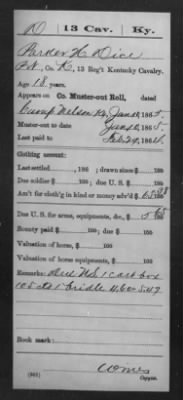 D | 13 Cav. | Ky.
Parker H. Dice
Pvt., Co. K, 13 Reg't Kentucky Cavalry.
Age 18 years.
Appears on Co. Muster-out Roll, dated
Camp Nelson Ky. Jan 10, 1865.
Muster-out to date Jan 10, 1865.
Last paid to Feb 29, 1864.
Clothing account:
Last settled , 186 ; drawn since $ 100
Due soldier $ 100 ; due U. S. $ 100
Am't for cloth'g in kind or money adv'd $ 100
Due U. S. for arms, equipments, &c., $ 5 65/100
Bounty paid $ 100 ; due $ 100
Valuation of horse, $ 100
Valuation of horse equipments, $ 100
Remarks: Due U.S. 1 cart box
105 cts 1 bridle 4.60
Book mark:
(861) Copyist.